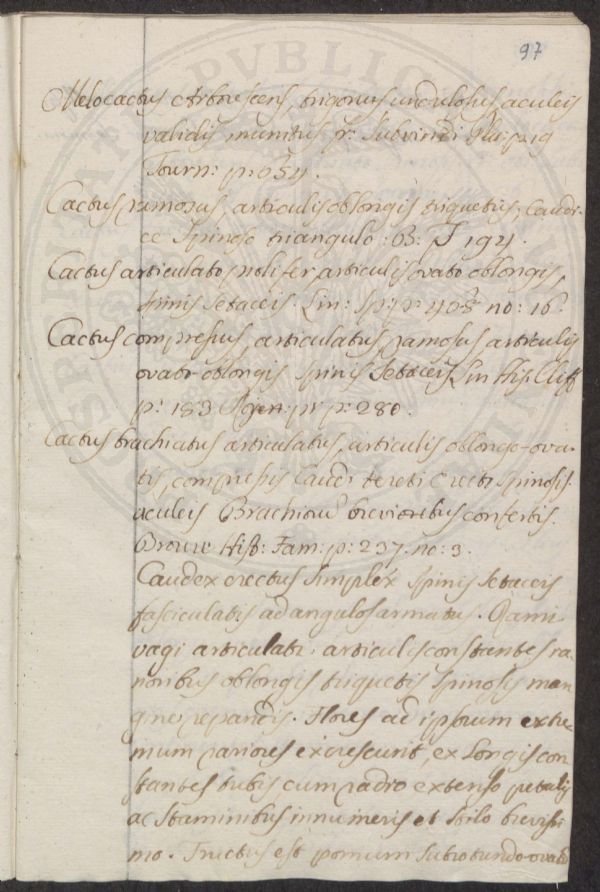 97
Melocactus arborescens, trigonus undulosus, aculeis
validis munitus pr:
Tourn: p: 654.
Cactus ramosus, articulis oblongis triquetris, Caudi-
ce Spinoso triangulo : B: T 192.
Cactus articulato prolifer, articulis ovato oblongis,
spinis setaceis. Lin: Sp: p: 468 no: 16.
Cactus compressus, articulatus, ramosus, articulis
ovato oblongis spinis Setaceis Lin His: Cliff
p: 183 p: 280.
Cactus brachiatus articulatus, articulis oblongo-ova-
tis, compressis Caudi tereti Erecti Spinosis
aculeis Brachiorũ brevioribus confertis.
Brow: Hist: Jam: p: 237. no: 3.
Caudex erectus simplex spinis setaceis
fasciculatis ad angulos armatus. Rami
vagi articulati, articulis constantes ra-
rioribus oblongis triquetris spinosis mar
gine repandis. Flores ad ipsorum extre-
mum rariores excrescunt, ex Longis con
stantes tubis cum radio extenso petalis
ac staminibus innumeris et stilo brevissi
mo. Fructus est pomum subrotundo-ovatũ